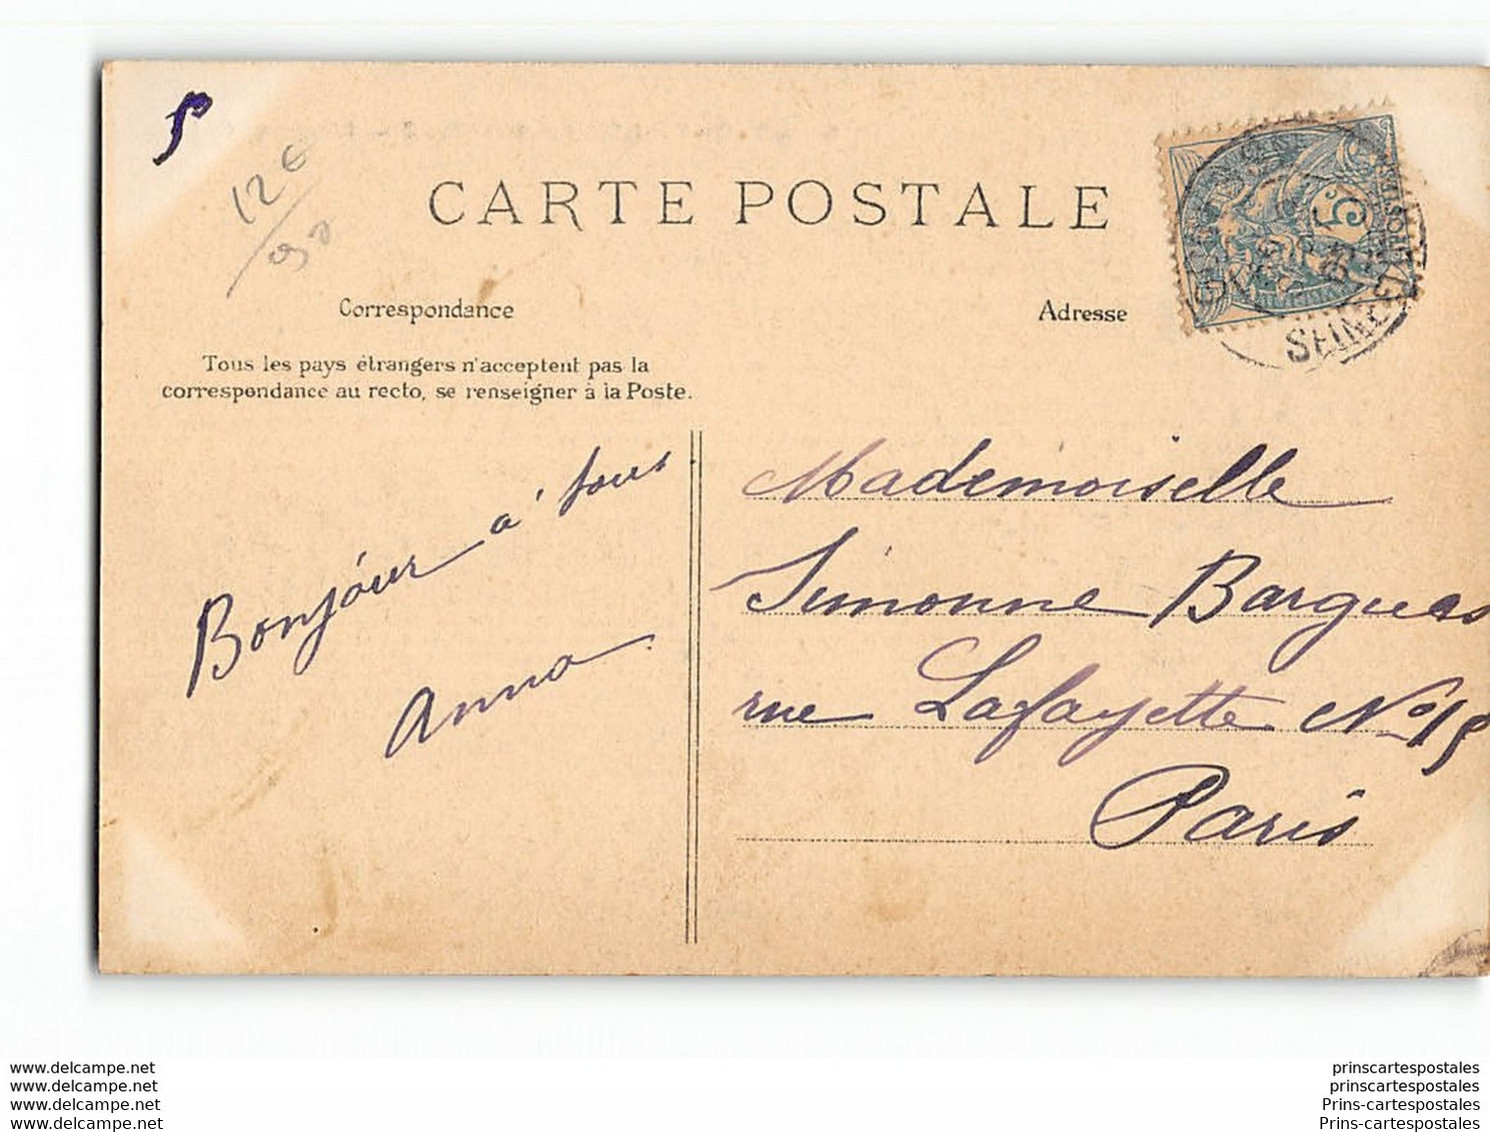 12 €
CARTE POSTALE
5c
POSTES
SEINE
Correspondance
Adresse
Tous les pays étrangers n'acceptent pas la
correspondance au recto, se renseigner à la Poste.
Bonjour à tous
Anna
Mademoiselle
Simonne Bargues
rue Lafayette No 15
Paris
www.delcampe.net
www.delcampe.net
www.delcampe.net
www.delcampe.net
prinscartespostales
prinscartespostales
Prins-cartespostales
Prins-cartespostales